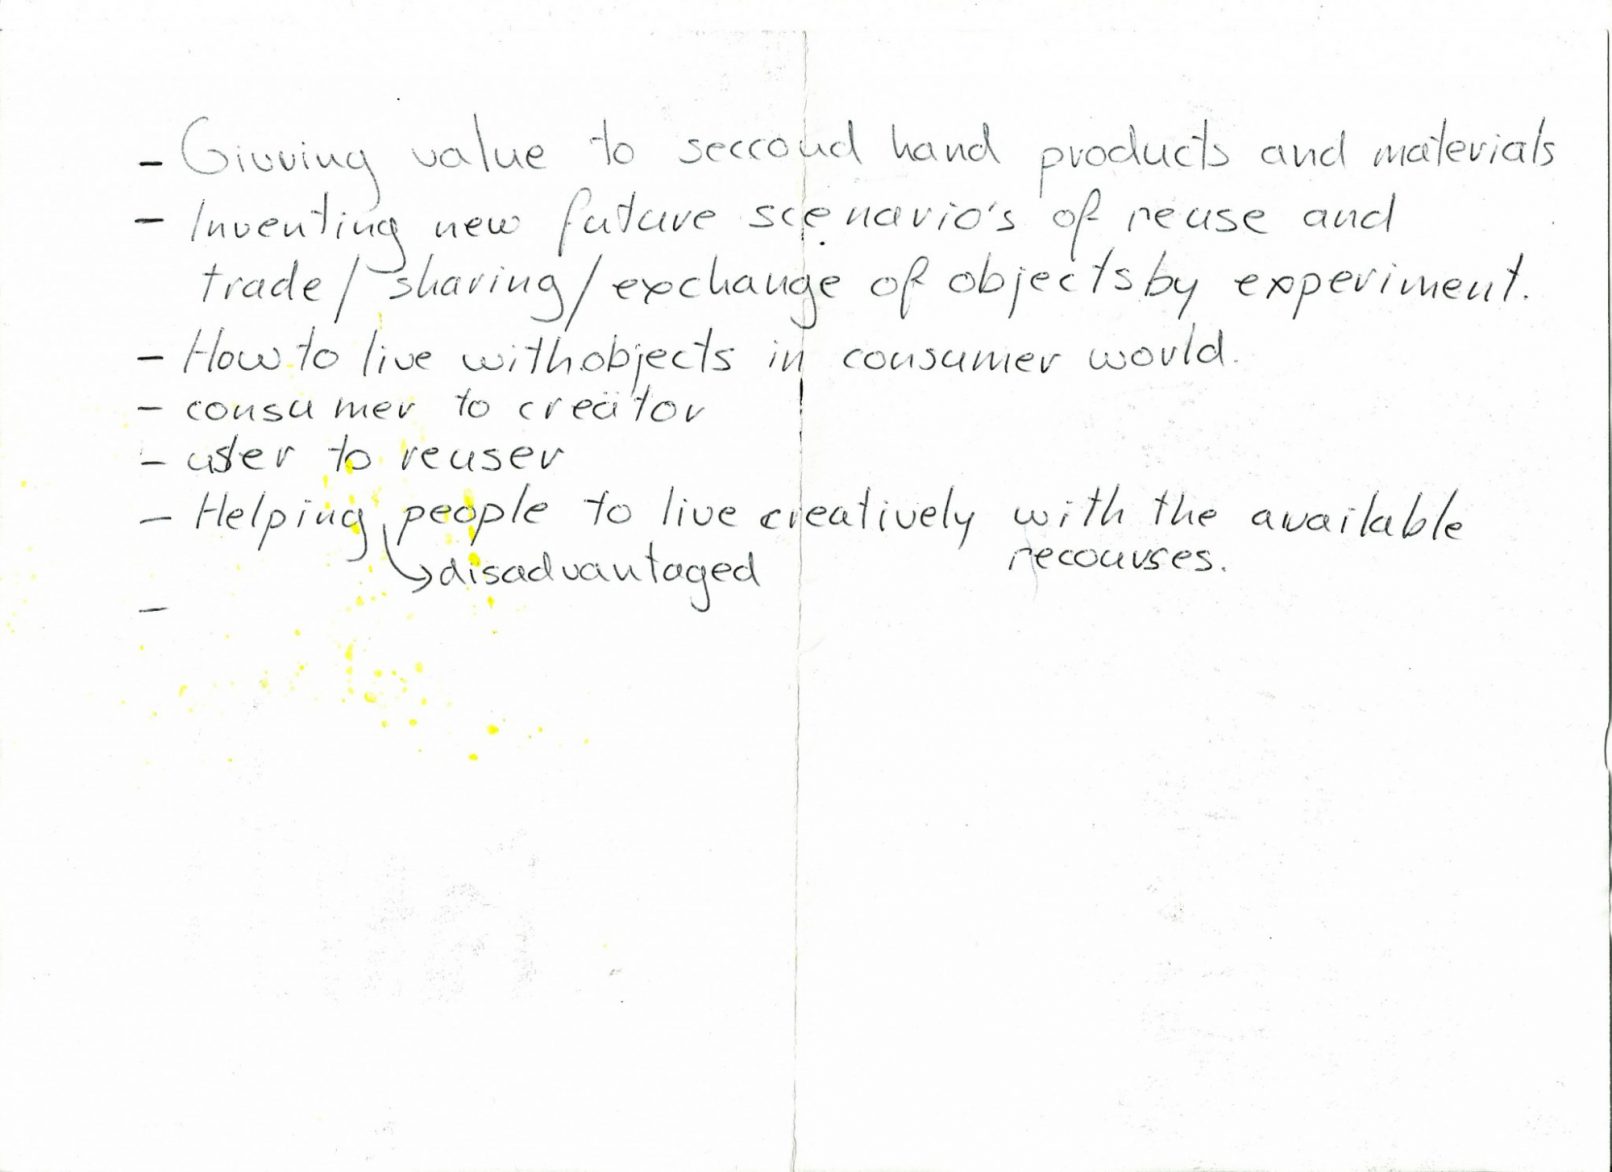 - Givving value to seccond hand products and materials
- Inventing new future scenario's of reuse and
trade/sharing/exchange of objects by experiment.
- How to live with objects in consumer world.
- consumer to creator
- user to reuser
- Helping people to live creatively with the available
recourses.
↳ disadvantaged
-